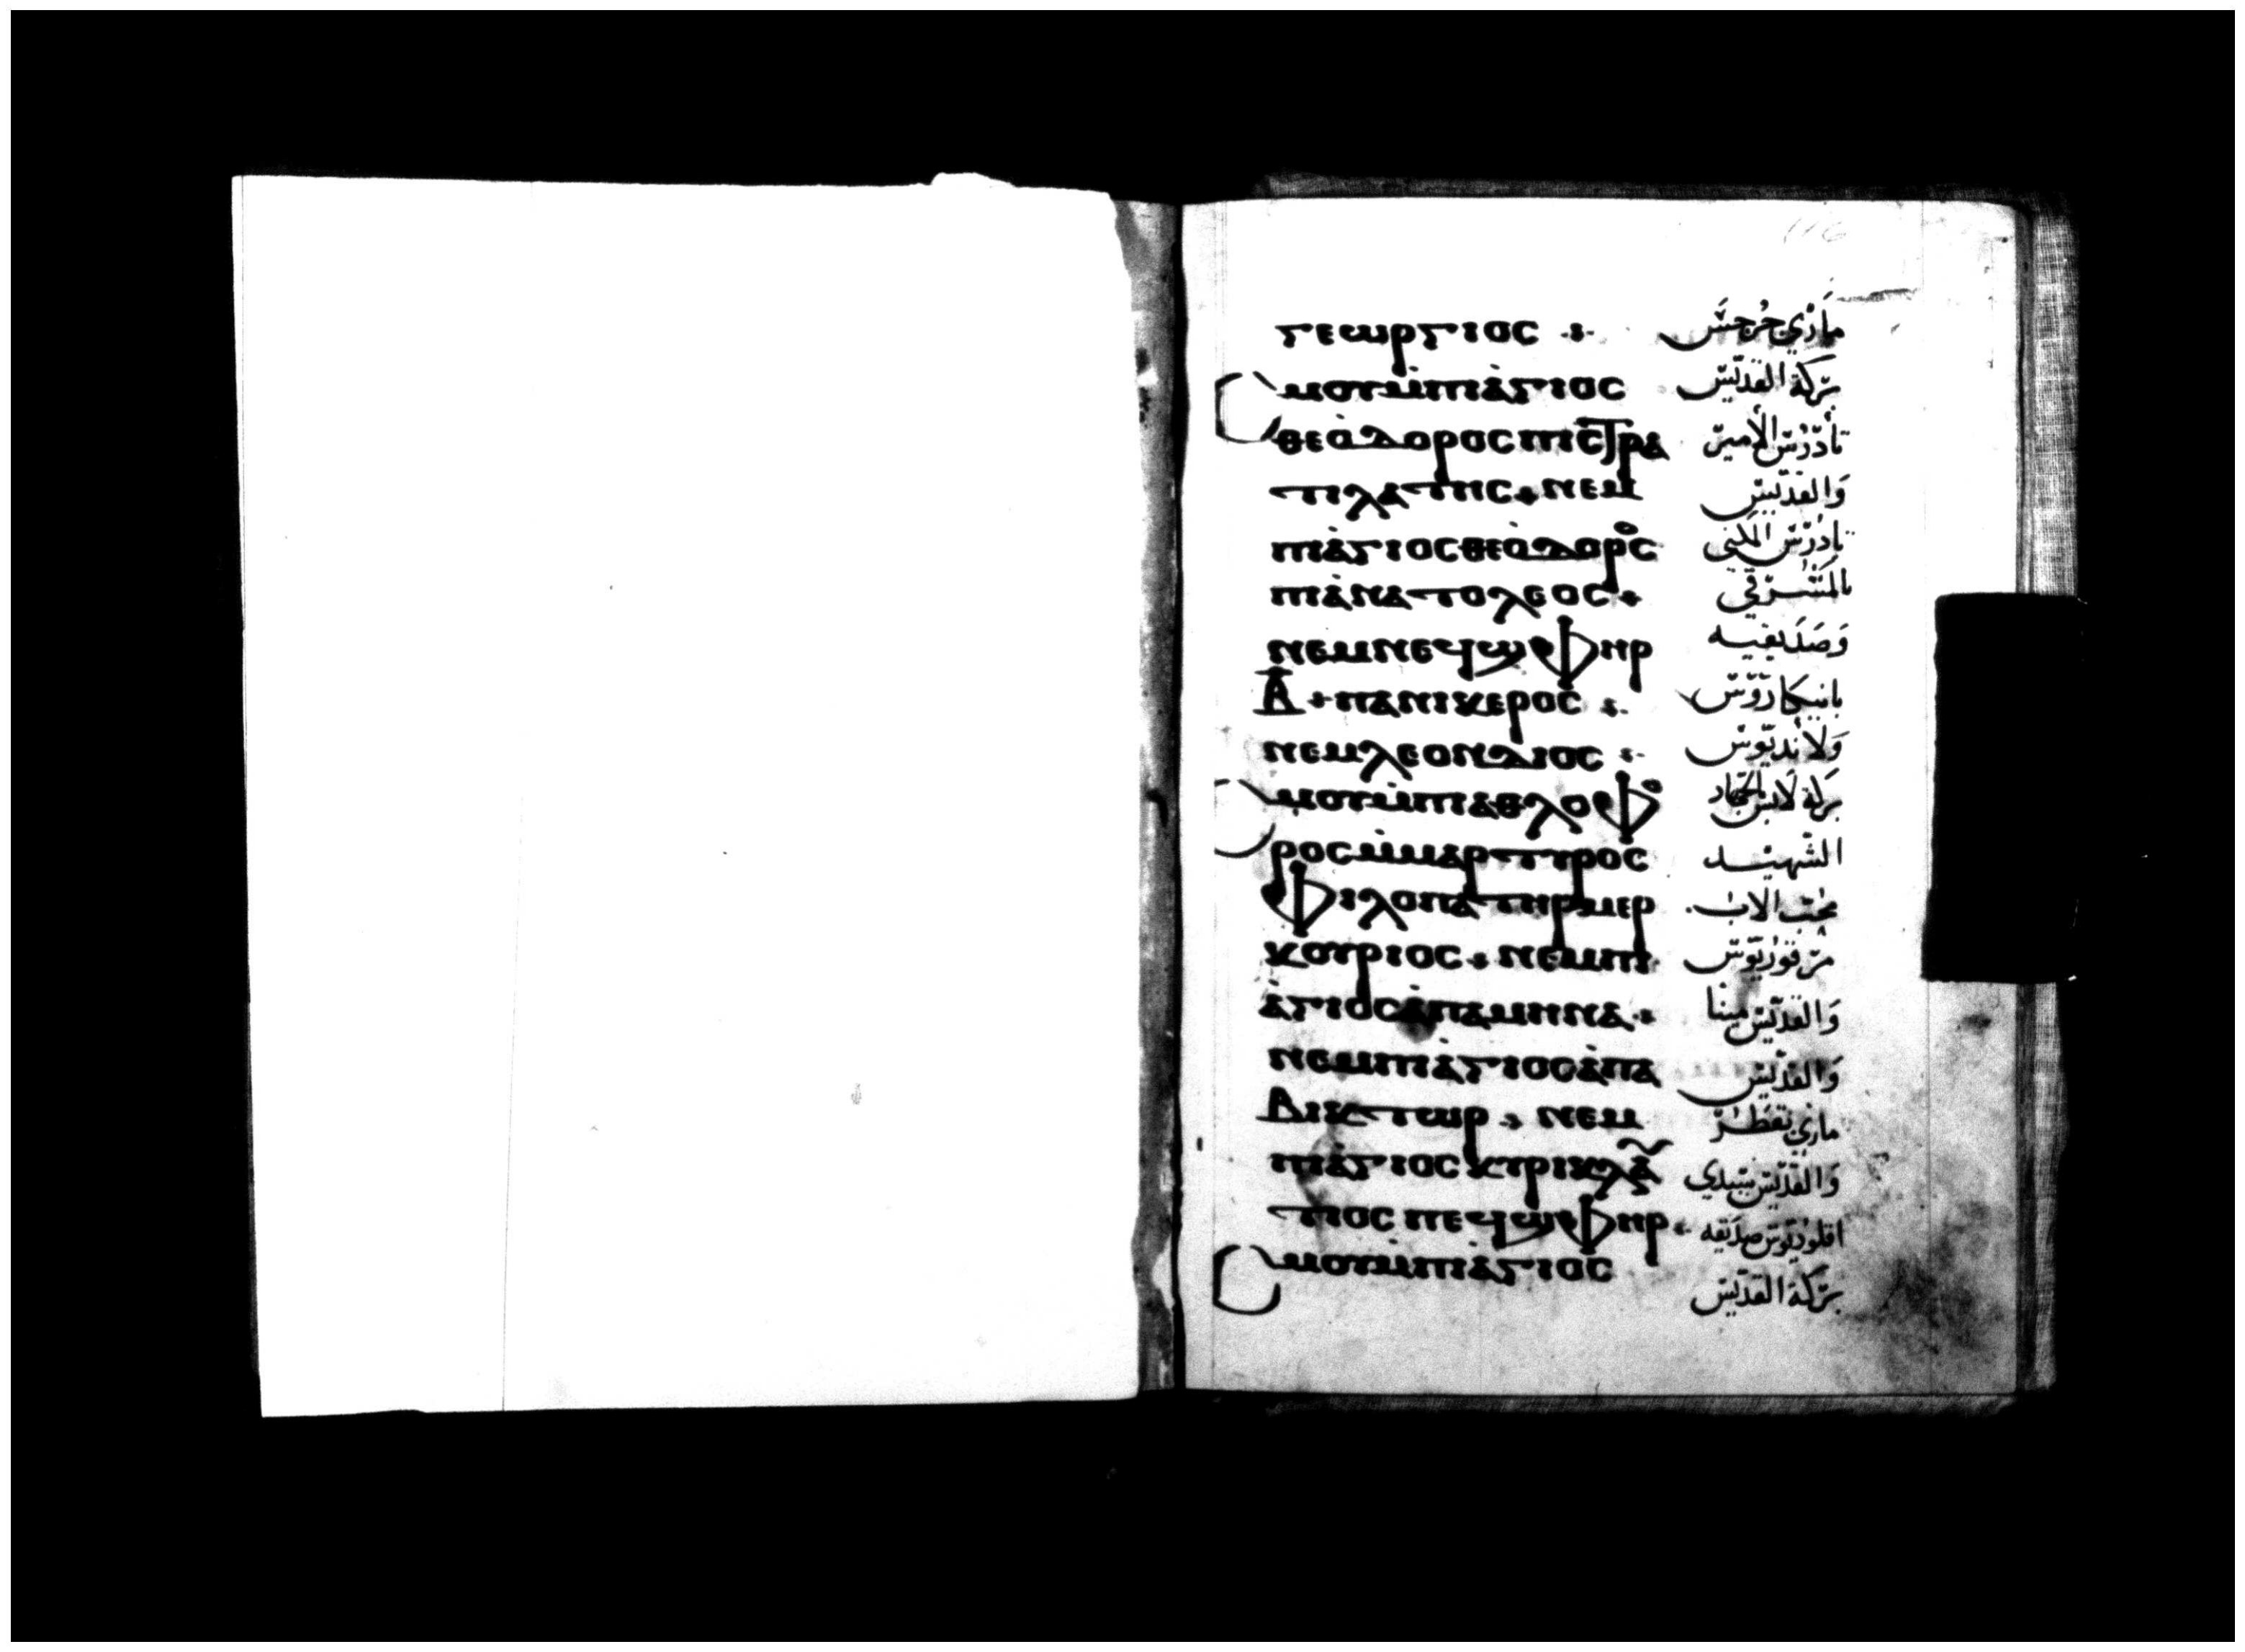 ⲅⲉⲱⲣⲅⲓⲟⲥ ⁘ مَارْي جُرجسَ
Ⲥⲙⲟⲩⲙ̇ⲡⲓⲁ̇ⲅⲓⲟⲥ بَركة القدّيسْ
ⲑⲉⲟ̇ⲇⲟⲣⲟⲥⲡⲓⲥⲧⲣⲁ تأدْرُس الأميرْ
ⲧⲓⲗⲁⲧⲏⲥ⳾ⲛⲉⲙ وَالقدّيسْ
ⲡⲓⲁ̇ⲅⲓⲟⲥⲑⲉⲟ̇ⲇⲟⲣⲟⲥ تادرُسْ
ⲡⲓⲁ̇ⲛⲁⲧⲟⲗⲉⲟⲥ⳾ المَشرقي
ⲛⲉⲙⲛⲉϥϣⲫⲏⲣ وَصَدَيقيه
ⲃ̅⳾ⲡⲁⲛⲓⲕⲉⲣⲟⲥ ⁘ بانيكارَوّسْ
ⲛⲉⲙⲗⲉⲟⲛⲇⲓⲟⲥ ⁘ وَلاندِيّوسْ
Ⲥⲙⲟⲩⲙ̇ⲡⲓⲁⲑⲗⲟⲫⲟ بَركة لابسْ الجهاد
ⲣⲟⲥⲙ̇ⲙⲁⲣⲧⲩⲣⲟⲥ الشّهيْد
ⲫⲓⲗⲟⲡⲁⲧⲏⲣⲙⲉⲣ محب الاب
ⲕⲟⲩⲣⲓⲟⲥ⳾ⲛⲉⲙⲡⲓ مرْقورْيّوسْ
ⲁ̇ⲅⲓⲟⲥⲁ̇ⲡⲁⲙⲏⲛⲁ⳾ وَالقدّيسْ مينا
ⲛⲉⲙⲡⲓⲁ̇ⲅⲓⲟⲥⲁ̇ⲡⲁ وَالقدّيسْ
ⲃⲓⲕⲧⲱⲣ⳾ ⲛⲉⲙ ماري بقطرْ
ⲡⲓⲁ̇ⲅⲓⲟⲥⲕⲩⲣⲓⲕⲗⲁ̃ وَالقدّيسْ سَيدي
ⲧⲓⲟⲥ ⲡⲉϥϣⲫⲏⲣ⳾ اقلودْيّوسْ صدَيقه
Ⲥⲙⲟⲩⲙ̇ⲡⲓⲁ̇ⲅⲓⲟⲥ بَركة القدّيسْ